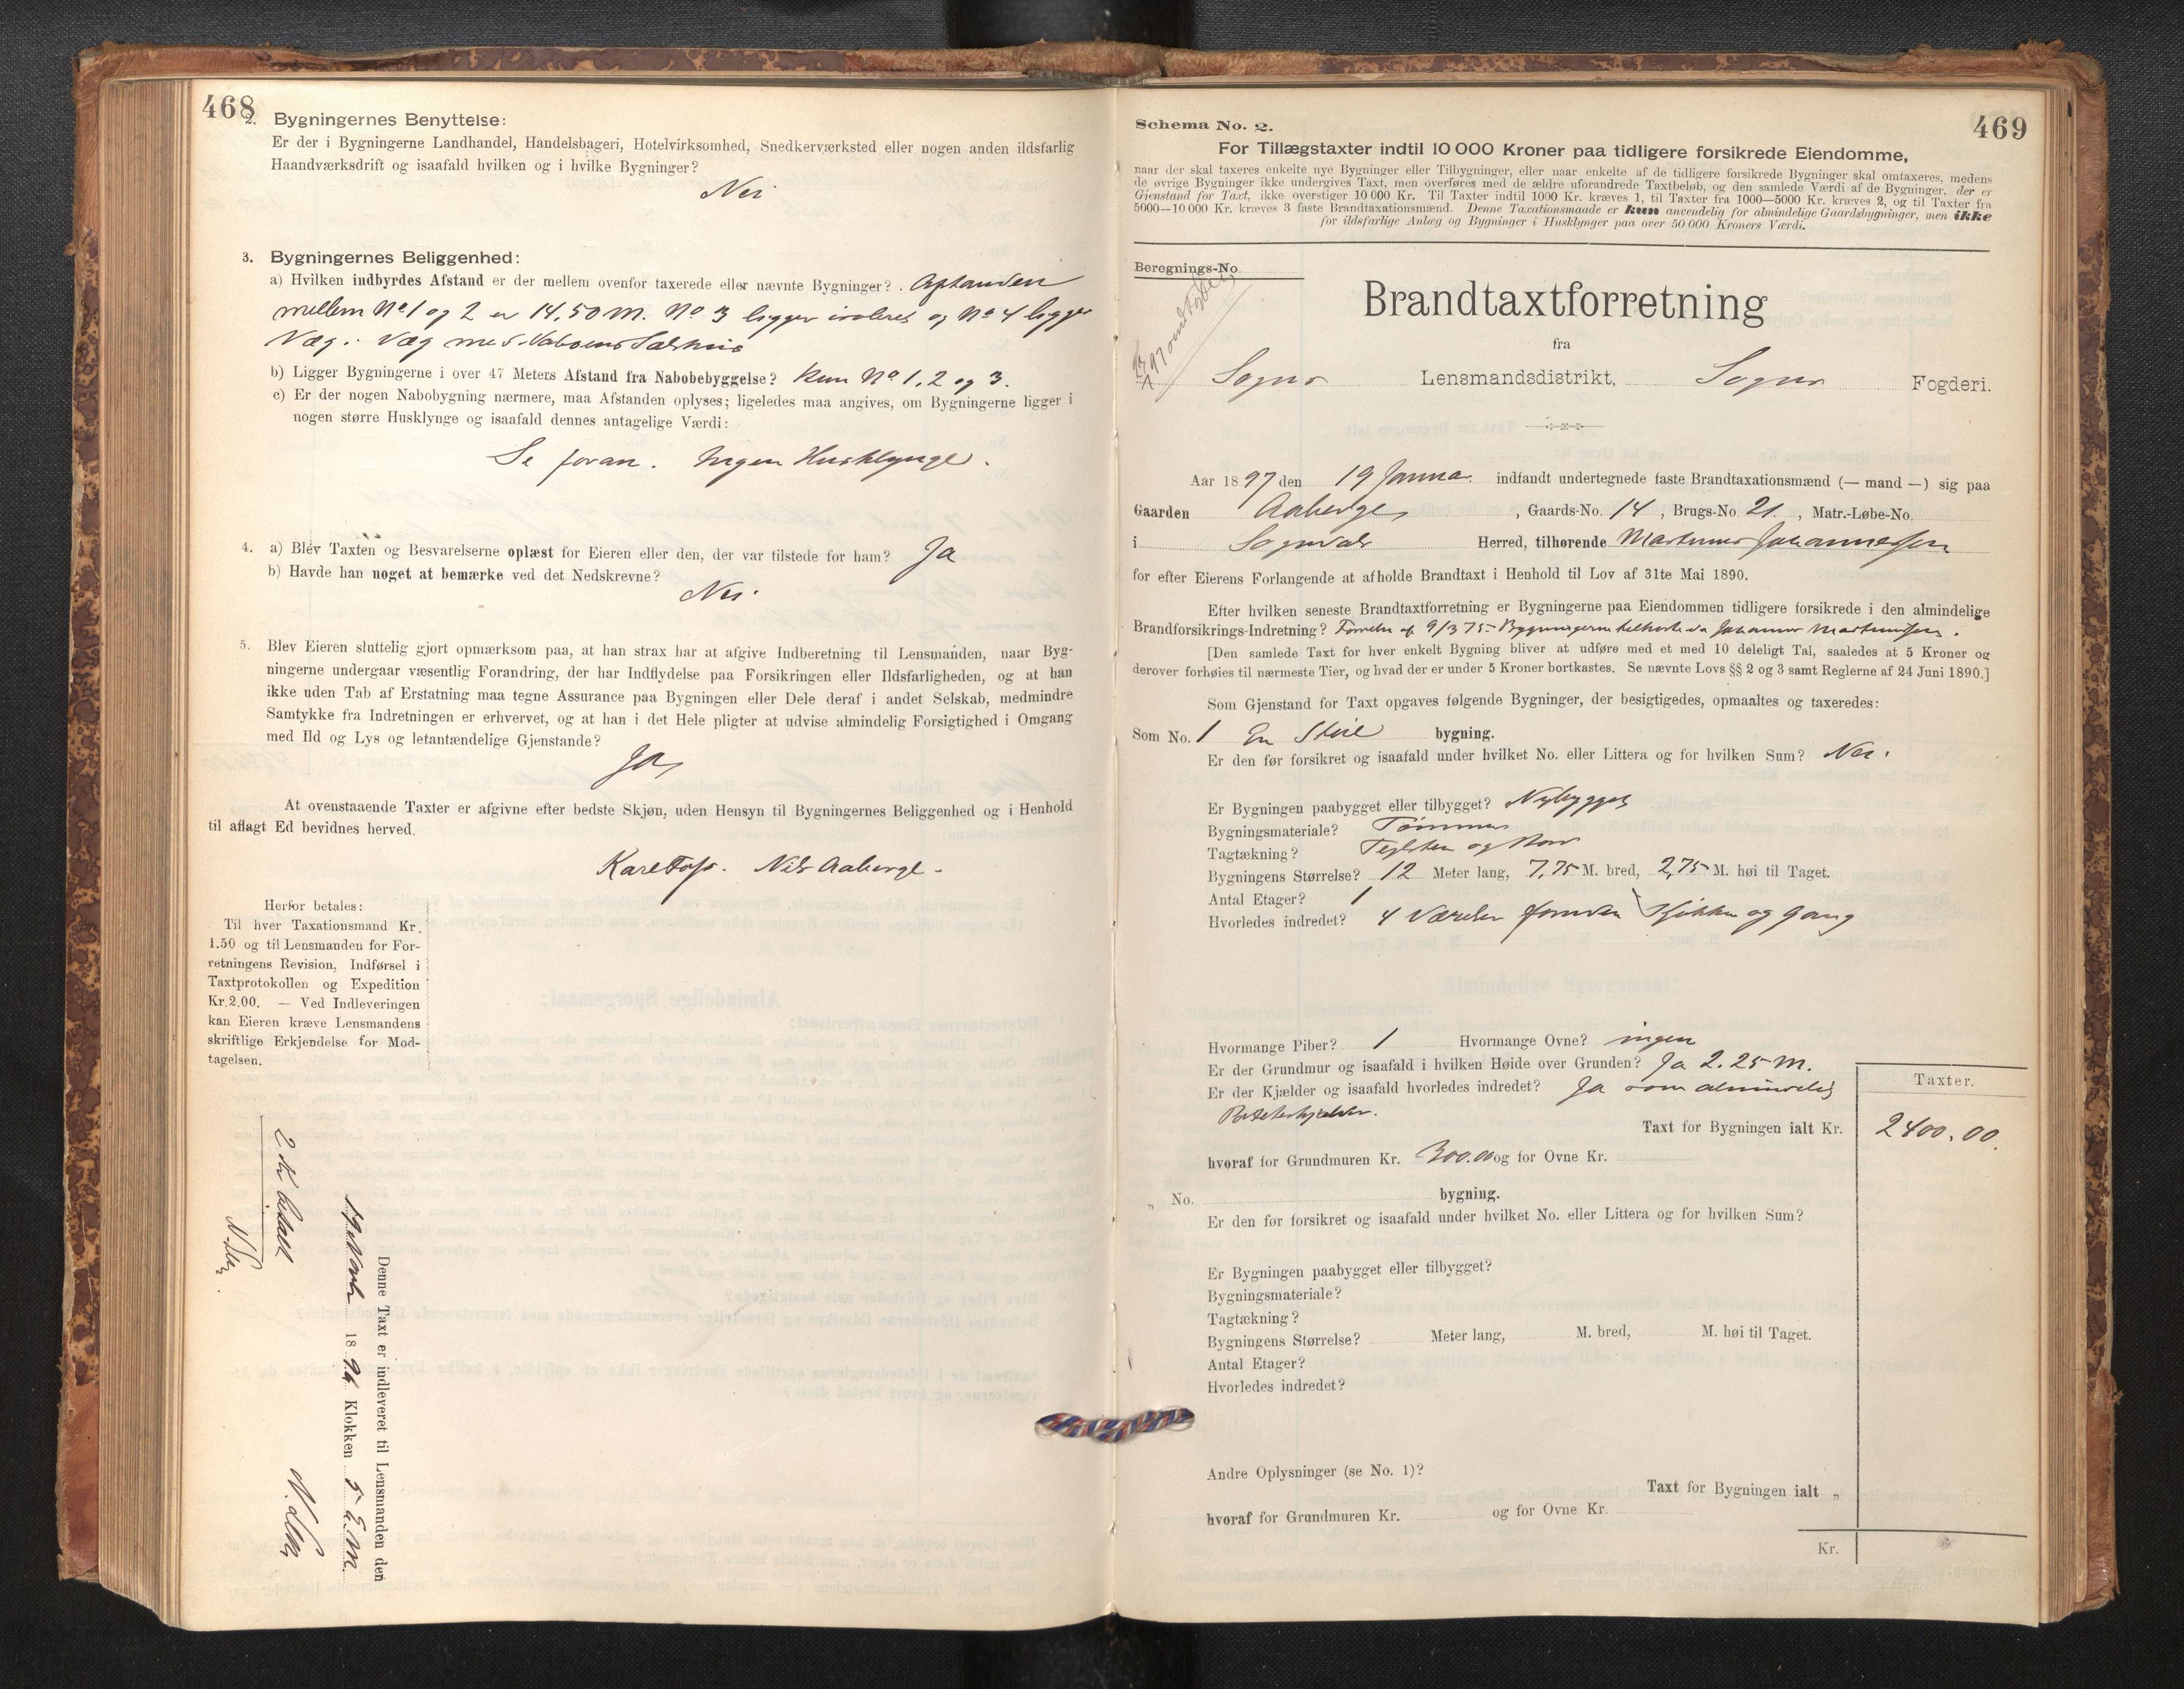 468
2. Bygningernes Benyttelse:
Er der i Bygningerne Landhandel, Handelsbageri, Hotelvirksomhed, Snedkerværksted eller nogen anden ildsfarlig
Haandværksdrift og isaafald hvilken og i hvilke Bygninger?
Nei
3. Bygningernes Beliggenhed:
a) Hvilken indbyrdes Afstand er der mellem ovenfor taxerede eller nævnte Bygninger? . Afstanden
mellem No 1 og 2 er 14,50 M. No 3 ligger isoleret og No 4 ligger
Væg i Væg med Naboens
b) Ligger Bygningerne i over 47 Meters Afstand fra Nabobebyggelse? Kun No 1, 2 og 3.
c) Er der nogen Nabobygning nærmere, maa Afstanden oplyses; ligeledes maa angives, om Bygningerne ligger i
nogen større Husklynge og isaafald dennes antagelige Værdi:
Se foran. Ingen Husklynge.
4. a) Blev Taxten og Besvarelserne oplæst for Eieren eller den, der var tilstede for ham? Ja
b) Havde han noget at bemærke ved det Nedskrevne?
Nei.
5. Blev Eieren sluttelig gjort opmærksom paa, at han strax har at afgive Indberetning til Lensmanden, naar Byg-
ningerne undergaar væsentlig Forandring, der har Indflydelse paa Forsikringen eller Ildsfarligheden, og at han
ikke uden Tab af Erstatning maa tegne Assurance paa Bygningen eller Dele deraf i andet Selskab, medmindre
Samtykke fra Indretningen er erhvervet, og at han i det Hele pligter at udvise almindelig Forsigtighed i Omgang
med Ild og Lys og letantændelige Gjenstande?
Ja
At ovenstaaende Taxter er afgivne efter bedste Skjøn, uden Hensyn til Bygningernes Beliggenhed og i Henhold
til aflagt Ed bevidnes herved.
Karl Foss. Nils Aaberge.
Herfor betales:
Til hver Taxationsmand Kr.
1.50 og til Lensmanden for For-
retningens Revision, Indførsel i
Taxtprotokollen og Expedition
Kr. 2.00. — Ved Indleveringen
kan Eieren kræve Lensmandens
skriftlige Erkjendelse for Mod-
tagelsen.
2 Kr betalt
Denne Taxt er indleveret til Lensmanden den
19 1896 Klokken 5 E.M.
469
Schema No. 2.
For Tillægstaxter indtil 10 000 Kroner paa tidligere forsikrede Eiendomme,
naar der skal taxeres enkelte nye Bygninger eller Tilbygninger, eller naar enkelte af de tidligere forsikrede Bygninger skal omtaxeres, medens
de øvrige Bygninger ikke undergives Taxt, men overføres med de ældre uforandrede Taxtbeløb, og den samlede Værdi af de Bygninger, der er
Gjenstand for Taxt, ikke overstiger 10 000 Kr. Til Taxter indtil 1000 Kr. kræves 1, til Taxter fra 1000—5000 Kr. kræves 2, og til Taxter fra
5000—10 000 Kr. kræves 3 faste Brandtaxationsmænd. Denne Taxationsmaade er kun anvendelig for almindelige Gaardsbygninger, men ikke
for ildsfarlige Anlæg og Bygninger i Husklynger paa over 50 000 Kroners Værdi.
Beregnings-No.
Brandtaxtforretning
fra
Sogns Lensmandsdistrikt, Sogns Fogderi.
Aar 1897 den 19 Januar indfandt undertegnede faste Brandtaxationsmænd (— mand —) sig paa
Gaarden Aaberge, Gaards-No. 14, Brugs-No. 21, Matr.-Løbe-No.
i Sogndal Herred, tilhørende Martinus Johannessen
for efter Eierens Forlangende at afholde Brandtaxt i Henhold til Lov af 31te Mai 1890.
Efter hvilken seneste Brandtaxtforretning er Bygningerne paa Eiendommen tidligere forsikrede i den almindelige
Brandforsikrings-Indretning? Forretn. af 9/3 75 Bygningerne tilhørte da Johannes Martinussen.
[Den samlede Taxt for hver enkelt Bygning bliver at udføre med et med 10 deleligt Tal, saaledes at 5 Kroner og
derover forhøies til nærmeste Tier, og hvad der er under 5 Kroner bortkastes. Se nævnte Lovs §§ 2 og 3 samt Reglerne af 24 Juni 1890.]
Som Gjenstand for Taxt opgaves følgende Bygninger, der besigtigedes, opmaaltes og taxeredes:
Som No. 1 En Stue bygning.
Er den før forsikret og isaafald under hvilket No. eller Littera og for hvilken Sum? Nei.
Er Bygningen paabygget eller tilbygget? Nybygget
Bygningsmateriale? Tømmer
Tagtækning? Teglsten og Bord
Bygningens Størrelse? 12 Meter lang, 7,75 M. bred, 2,75 M. høi til Taget.
Antal Etager? 1
Hvorledes indredet? 4 Værelser foruden Kjøkken og Gang
Hvormange Piber? 1 Hvormange Ovne? ingen
Er der Grundmur og isaafald i hvilken Høide over Grunden? Ja 2.25 M.
Er der Kjælder og isaafald hvorledes indredet? Ja som almindelig
Potetetkjelder.
Taxter.
Taxt for Bygningen ialt Kr. 2400.00.
hvoraf for Grundmuren Kr. 300.00 og for Ovne Kr.
„ No. bygning.
Er den før forsikret og isaafald under hvilket No. eller Littera og for hvilken Sum?
Er Bygningen paabygget eller tilbygget?
Bygningsmateriale?
Tagtækning?
Bygningens Størrelse? Meter lang, M. bred, M. høi til Taget.
Antal Etager?
Hvorledes indredet?
Andre Oplysninger (se No. 1)?
Taxt for Bygningen ialt „
hvoraf for Grundmuren Kr. og for Ovne Kr.
Kr.